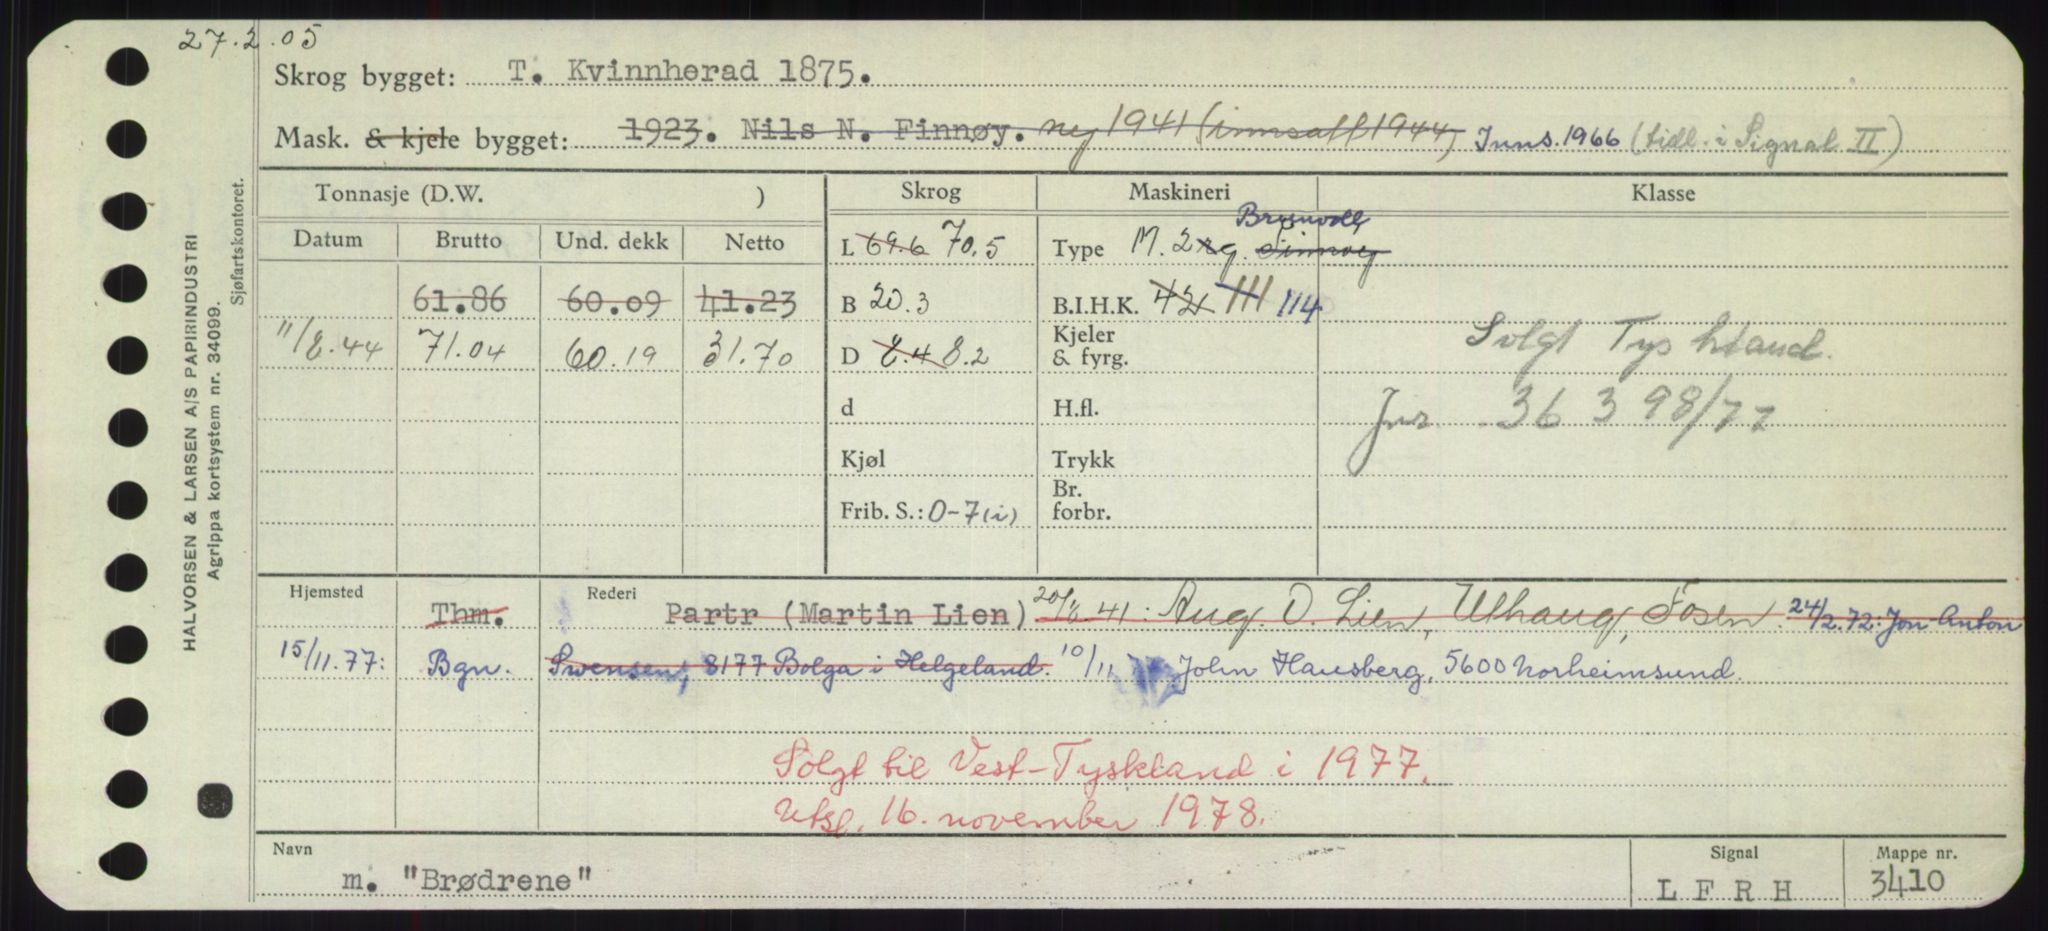 27.2.05
Skrog bygget: T. Kvinnherad 1875.
Mask. & kjele bygget: 1923. Nils N. Finnøy. ny 1941 (innsatt 1944) Inns. 1966 (tidl. i Signal II)
HALVORSEN & LARSEN A/S PAPIRINDUSTRI
Agrippa kortsystem nr. 34099.
Sjøfartskontoret.
Tonnasje (D.W. ) Skrog Maskineri Klasse
Datum Brutto Und. dekk Netto
L 69.6 70.5 Type M. 2 Brunvoll
61.86 60.09 41.23 B 20.3 B.I.H.K. 42 111 114
11/8.44 71.04 60.19 31.70 D 8.4 8.2 Kjeler & fyrg. Solgt Tyskland.
d H.fl. Jnr. 36 3 98/77
Kjøl Trykk
Frib. S.: 0-7(i) Br. forbr.
Hjemsted Rederi
Thm. Partr (Martin Lien) 20/6 41: Aug. O. Lien, Uthaug, Fosen. 24/2.72: Jon-Anton
15/11.77: Bgn. Svensen, 8177 Bolga i Helgeland. 10/11 John Hausberg, 5600 Norheimsund.
Solgt til Vest-Tyskland i 1977.
Utsl. 16. november 1978.
Navn Signal Mappe nr.
m. "Brødrene" L F R H 3410